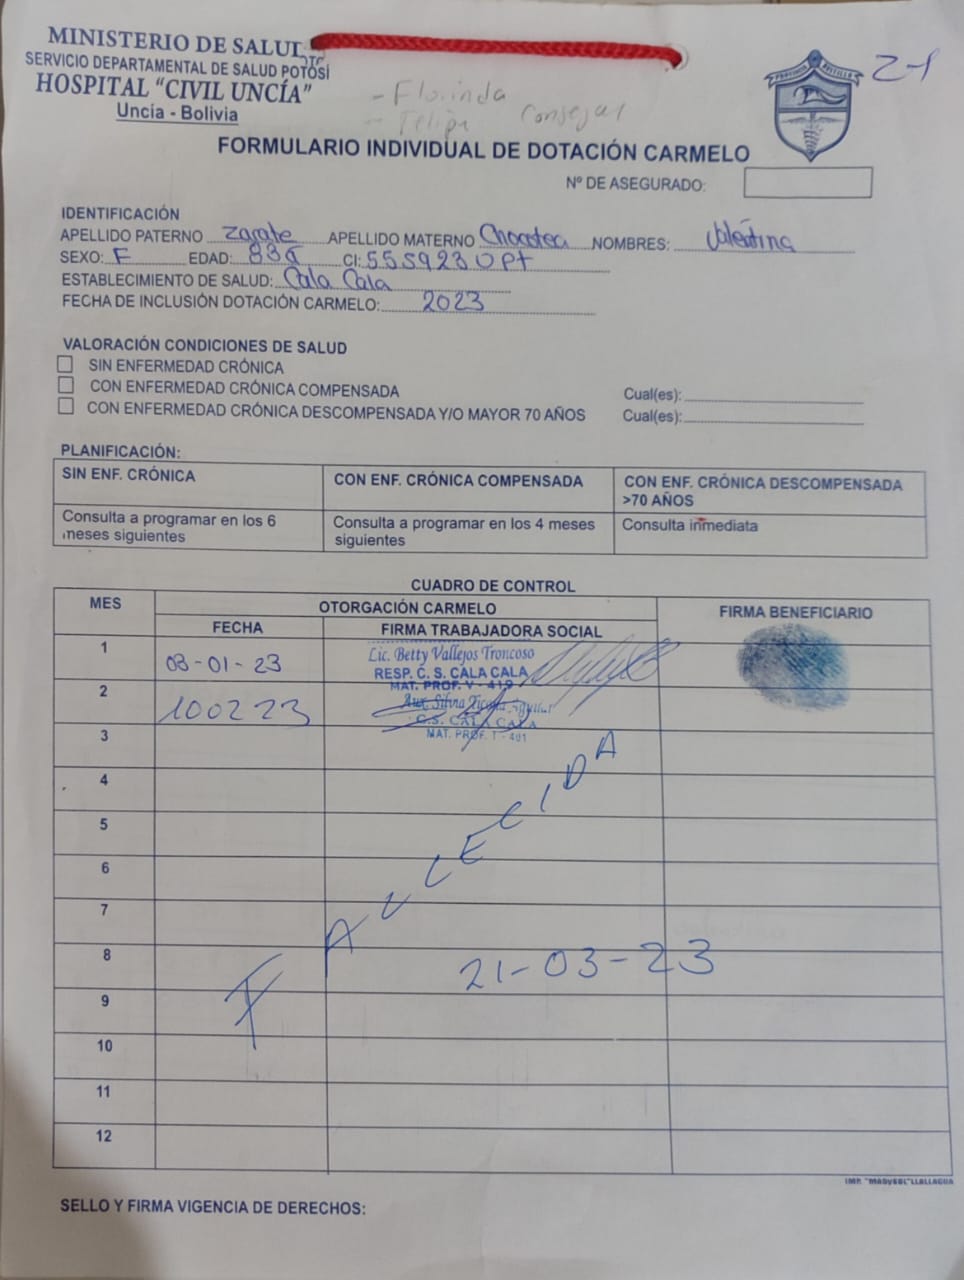 MINISTERIO DE SALUD
SERVICIO DEPARTAMENTAL DE SALUD POTOSÍ
HOSPITAL "CIVIL UNCÍA"
Uncía - Bolivia
PROVINCIA BUSTILLO
Z-1
- Florinda
- Felipa Consejal
FORMULARIO INDIVIDUAL DE DOTACIÓN CARMELO
Nº DE ASEGURADO:
IDENTIFICACIÓN
APELLIDO PATERNO Zarate APELLIDO MATERNO Chocotea NOMBRES: Valentina
SEXO: F EDAD: 83a CI: 5559230 Pt
ESTABLECIMIENTO DE SALUD: Cala Cala
FECHA DE INCLUSIÓN DOTACIÓN CARMELO: 2023
VALORACIÓN CONDICIONES DE SALUD
SIN ENFERMEDAD CRÓNICA
CON ENFERMEDAD CRÓNICA COMPENSADA Cual(es):
CON ENFERMEDAD CRÓNICA DESCOMPENSADA Y/O MAYOR 70 AÑOS Cual(es):
PLANIFICACIÓN:
SIN ENF. CRÓNICA CON ENF. CRÓNICA COMPENSADA CON ENF. CRÓNICA DESCOMPENSADA
>70 AÑOS
Consulta a programar en los 6 Consulta a programar en los 4 meses Consulta inmediata
meses siguientes siguientes
CUADRO DE CONTROL
MES OTORGACIÓN CARMELO FIRMA BENEFICIARIO
FECHA FIRMA TRABAJADORA SOCIAL
1 03-01-23 Lic. Betty Vallejos Troncoso
RESP. C. S. CALA CALA
MAT. PROF. V - 419
2 100223 Aux. Silvia
C.S. CALA CALA
MAT. PROF. T - 401
3
4
5
6
7
FALLECIDA
8 21-03-23
9
10
11
12
IMP. "MADYSOL" LLALLAGUA
SELLO Y FIRMA VIGENCIA DE DERECHOS: